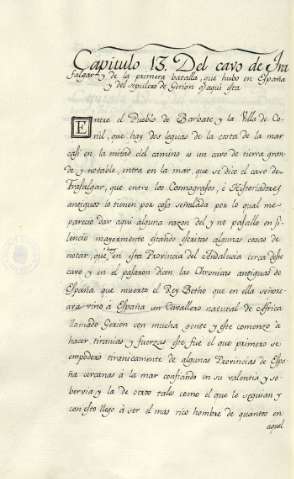 Capitulo 13. Del cavo de Tra
falgar y de la primera batalla, que hubo en España
y del sepulcro de Gerion q̃ aqui esta
Entre el Pueblo de Barbate y la Villa de Co-
nil, que hay dos leguas de la costa de la mar
casi en la mitad del camino es un cavo de tierra gran-
de y notable, entra en la mar, que se dice el cavo de
Trafalgar, que entre los Cosmografos, è Historiadores
antiguos lo tienen por cosa señalada por lo qual me
parecio dar aqui alguna razon del y no pasallo en si-
lencio mayormente estando escritas algunas cosas de
notar, que en esta Provincia del Andalucia circa deste
cavo y en el pasaron dicen las Chronicas antiguas de
España que muerto el Rey Beto que en ella señore-
ara vino á España un Cavallero natural de Africa
llamado Gerion con mucha gente y este comenzó a
hacer tiranias y fuerzas este fue el que primero se
empodero tiranicamente de algunas Provincias de Espa-
ña cercanas à la mar confiando en su valentia y so-
bervia y la de otros tales como el que le seguian y
con esto llego à ser el mas rico hombre de quantos en
aquel